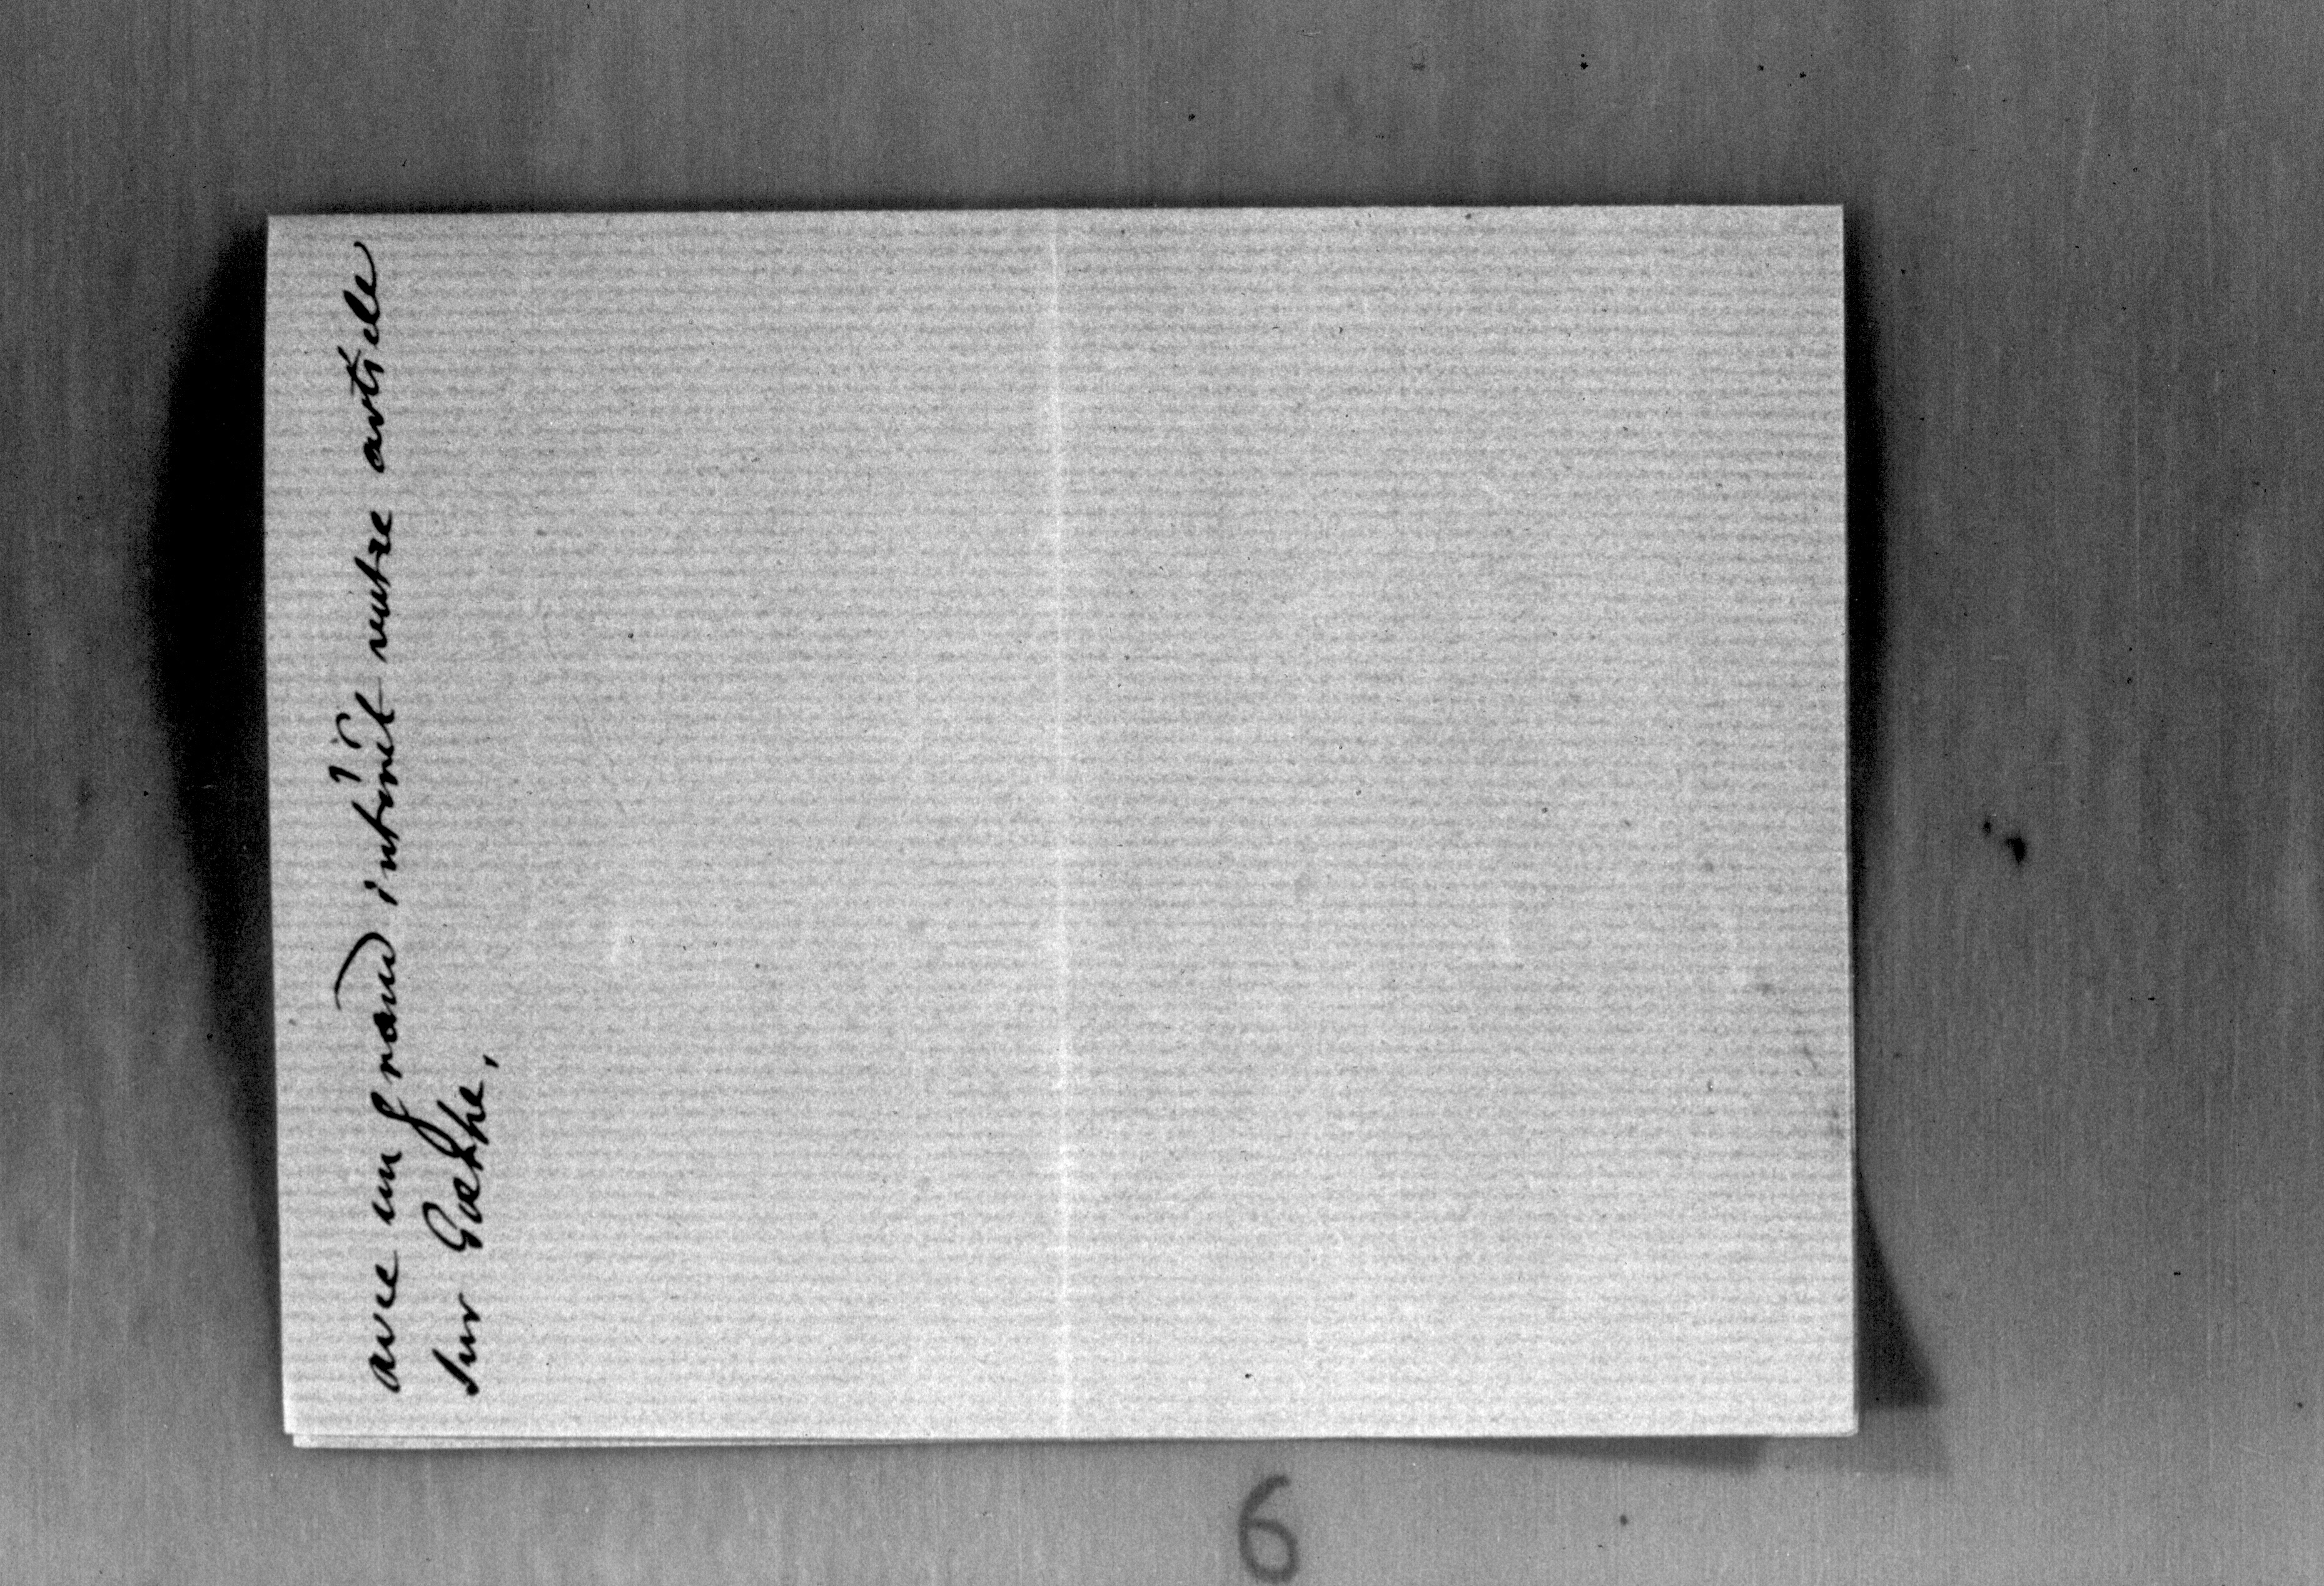 avec un grand intérêt votre article
sur Goethe.
6